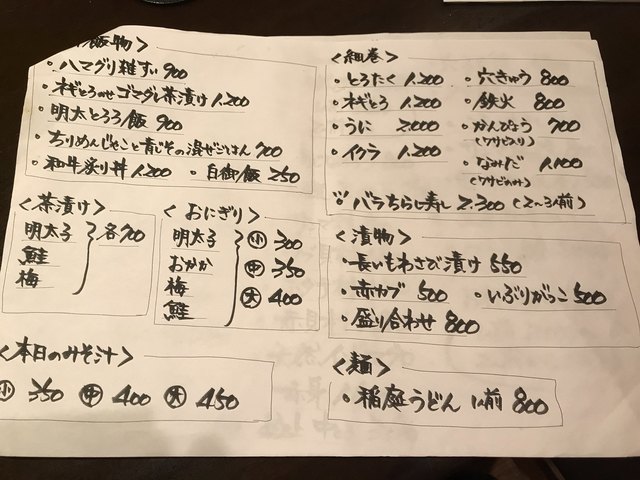 飯物＞
・ハマグリ雑すい 900
・ネギとろのせゴマダレ茶漬け 1,200
・明太とろろ飯 900
・ちりめんじゃこと青じその混ぜごはん 700
・和牛炙り丼 1,200 ・白御飯 250
＜茶漬け＞
明太子
鮭
梅
各700
＜おにぎり＞
明太子
おかか
梅
鮭
小 300
中 350
大 400
＜本日のみそ汁＞
小 350 中 400 大 450
＜細巻＞
・とろたく 1,200 ・穴きゅう 800
・ネギとろ 1,200 ・鉄火 800
・うに 2,000 ・かんぴょう 700
(ワサビ入り)
・イクラ 1,200 ・なみだ 1,100
(ワサビのみ)
※バラちらし寿し 2,300 (2〜3人前)
＜漬物＞
・長いもわさび漬け 550
・赤カブ 500 ・いぶりがっこ 500
・盛り合わせ 800
＜麺＞
・稲庭うどん 1人前 800